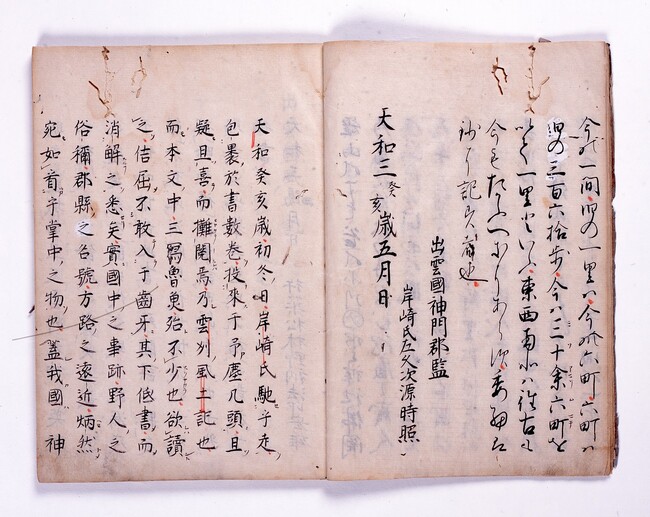 今の一間四の一里ハ今の六町六町ハ
四の三百六拾歩今ハ三十余六町を
以て一里といふ東西南北ハ往古も
今も
記
天和三癸亥歳五月日
出雲國神門郡監
岸崎氏左久次源時照
天和癸亥歳初冬日岸崎氏馳乎走
包裹於書數巻投来于予塵几頭且
疑且喜而攤閲焉乃雲州風土記也
而本文中三寫魯魚殆不少也欲讀
之佶屈不敢入于齒牙其下低書而
消解之悉矣實國中之事跡野人之
俗稱郡縣之名號方路之遠近炳然
宛如看乎掌中之物也蓋我國神